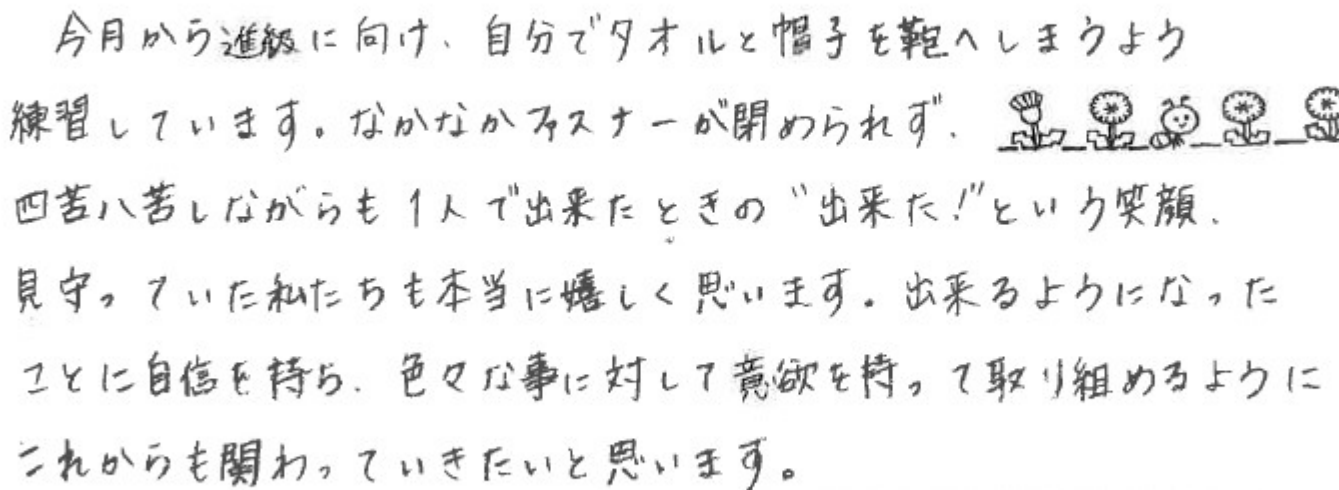 今月から進級に向け、自分でタオルと帽子を鞄へしまうよう
練習しています。なかなかファスナーが閉められず、
四苦八苦しながらも1人で出来たときの"出来た!"という笑顔、
見守っていた私たちも本当に嬉しく思います。出来るようになった
ことに自信を持ち、色々な事に対して意欲を持って取り組めるように
これからも関わっていきたいと思います。